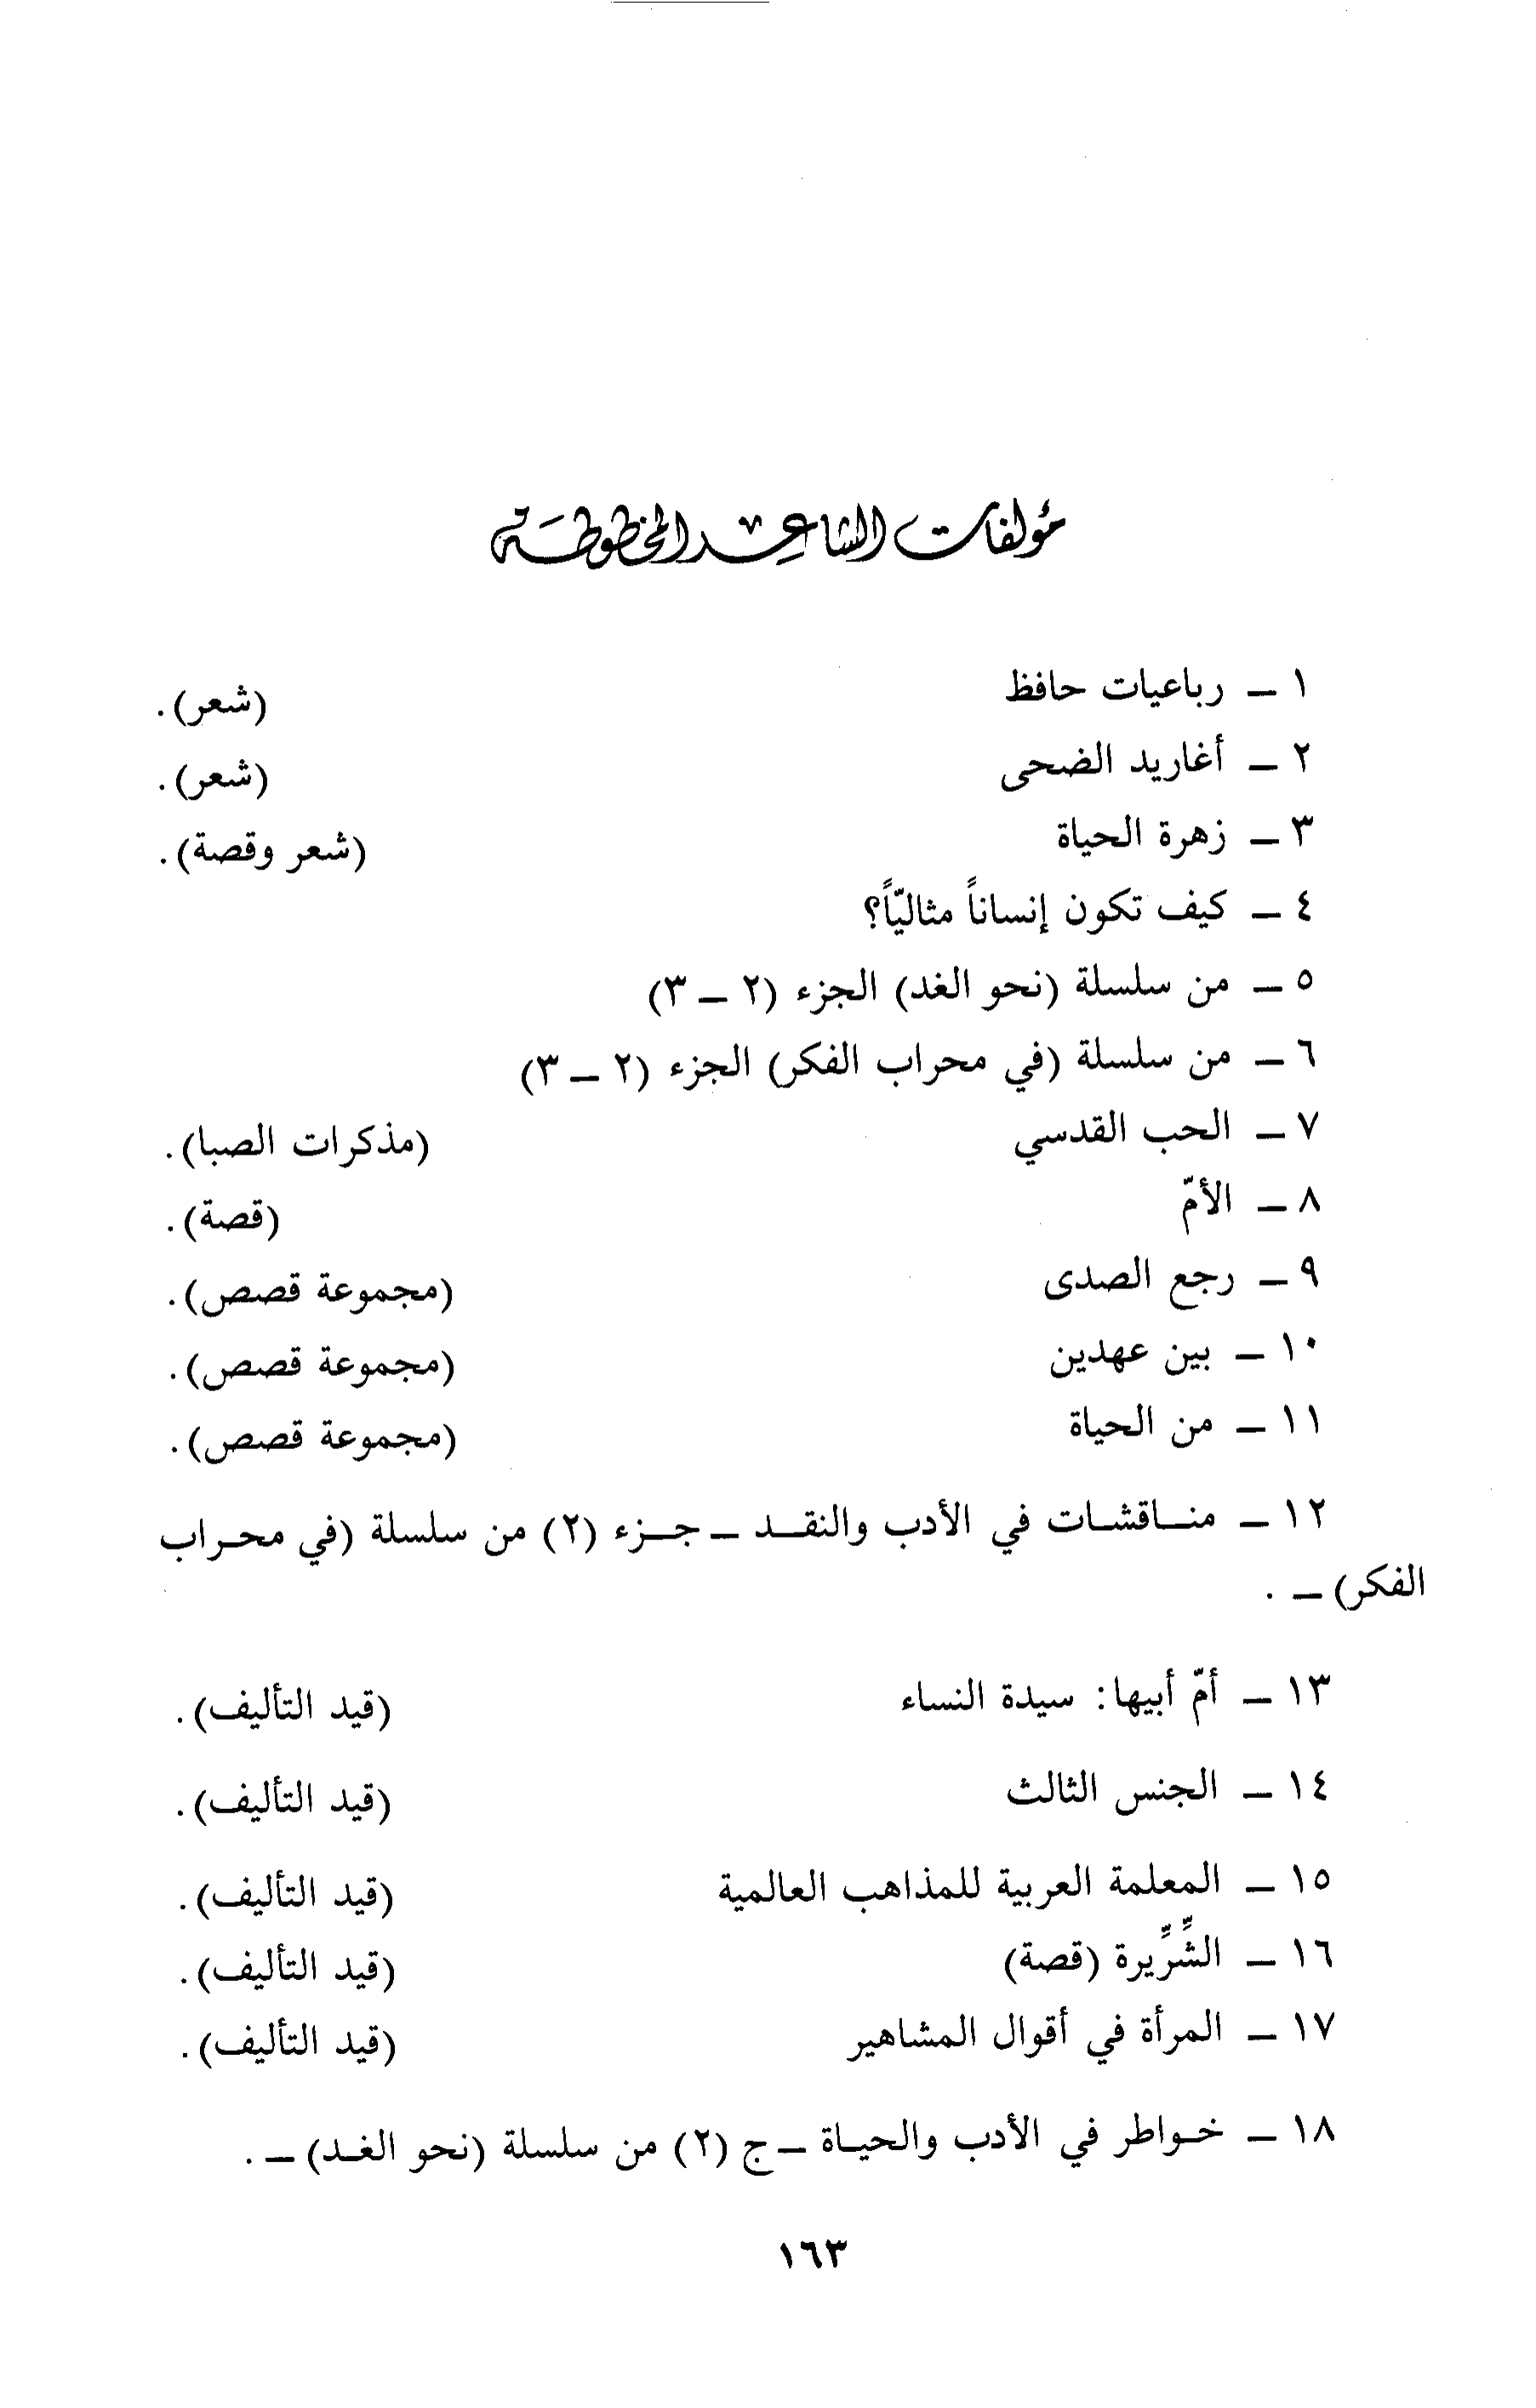 مؤلفات الشاعر المخطوطة
١ ـ رباعيات حافظ (شعر).
٢ ـ أغاريد الضحى (شعر).
٣ ـ زهرة الحياة (شعر وقصة).
٤ ـ كيف تكون إنساناً مثاليّاً؟
٥ ـ من سلسلة (نحو الغد) الجزء (٢ ـ ٣)
٦ ـ من سلسلة (في محراب الفكر) الجزء (٢ ـ ٣)
٧ ـ الحب القدسي (مذكرات الصبا).
٨ ـ الأمّ (قصة).
٩ ـ رجع الصدى (مجموعة قصص).
١٠ ـ بين عهدين (مجموعة قصص).
١١ ـ من الحياة (مجموعة قصص).
١٢ ـ منـاقشـات في الأدب والنقـد ـ جـزء (٢) من سلسلة (في محـراب
الفكر) ـ .
١٣ ـ أمّ أبيها: سيدة النساء (قيد التأليف).
١٤ ـ الجنس الثالث (قيد التأليف).
١٥ ـ المعلمة العربية للمذاهب العالمية (قيد التأليف).
١٦ ـ الشِّرِّيرة (قصة) (قيد التأليف).
١٧ ـ المرأة في أقوال المشاهير (قيد التأليف).
١٨ ـ خـواطر في الأدب والحيـاة ـ ج (٢) من سلسلة (نحو الغـد) ـ .
١٦٣